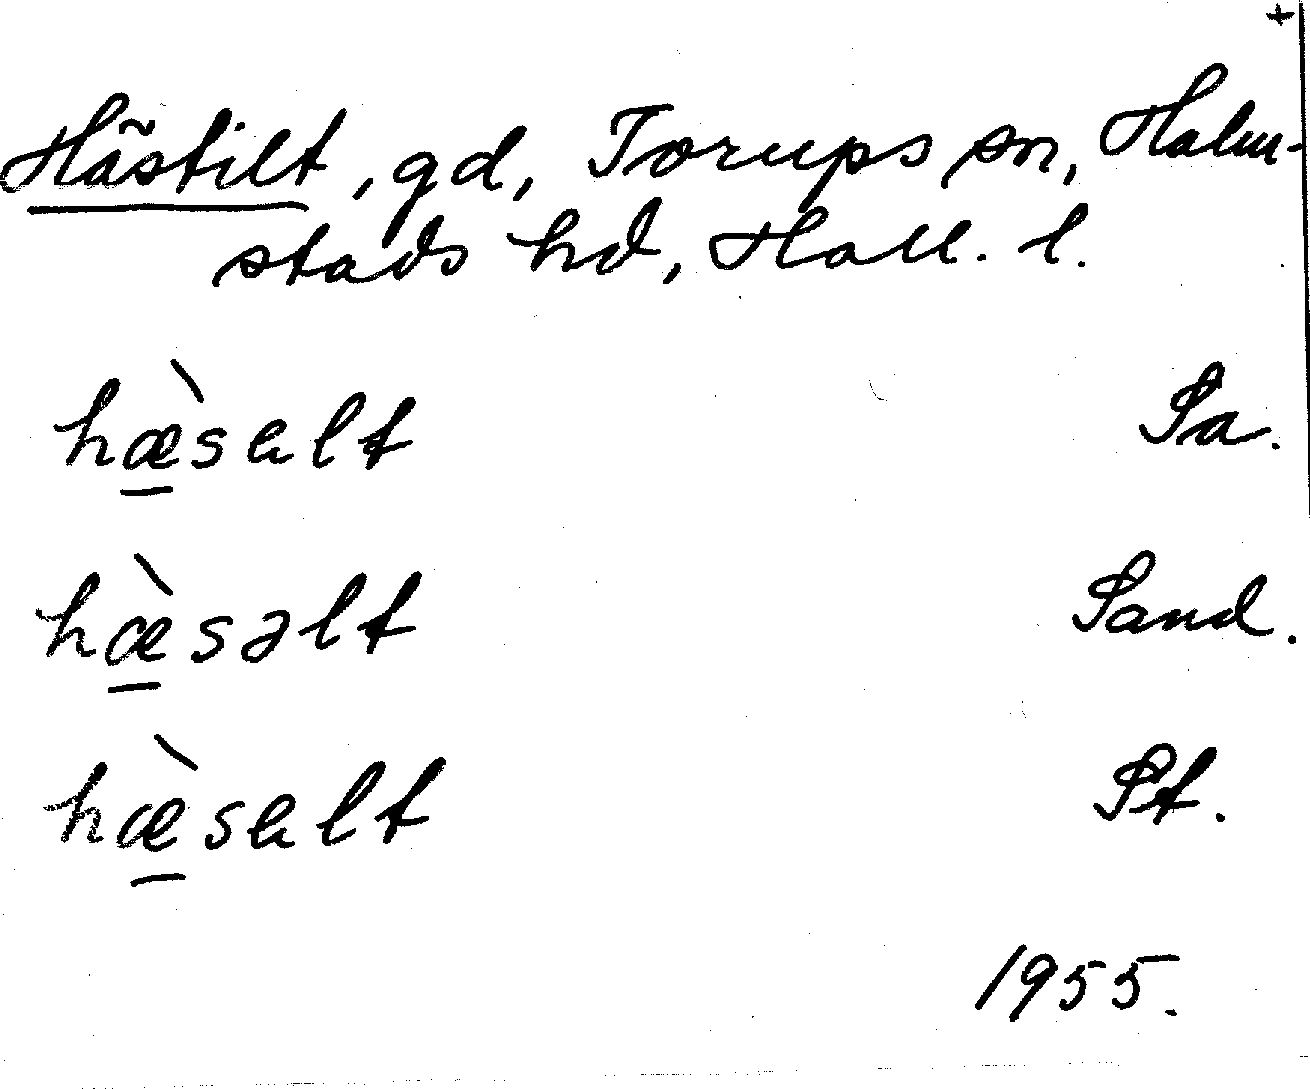 +
Hästilt, gd, Torups sn, Halm-
stads hd, Hall. l.
hæ̱̀sɐlt Sa.
hæ̱̀səlt Sand.
hæ̱̀sɐlt St.
1955.